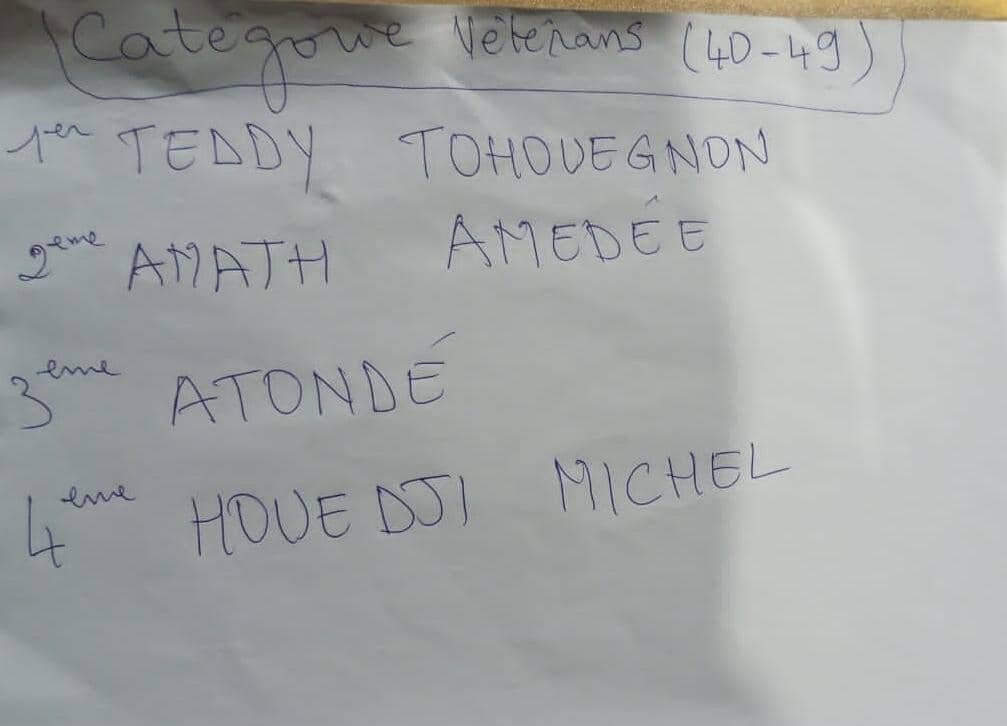 Catégorie Vétérans (40-49)
1er TEDDY TOHOUEGNON
2eme AMATH AMEDÉE
3eme ATONDÉ
4eme HOUEDJI MICHEL